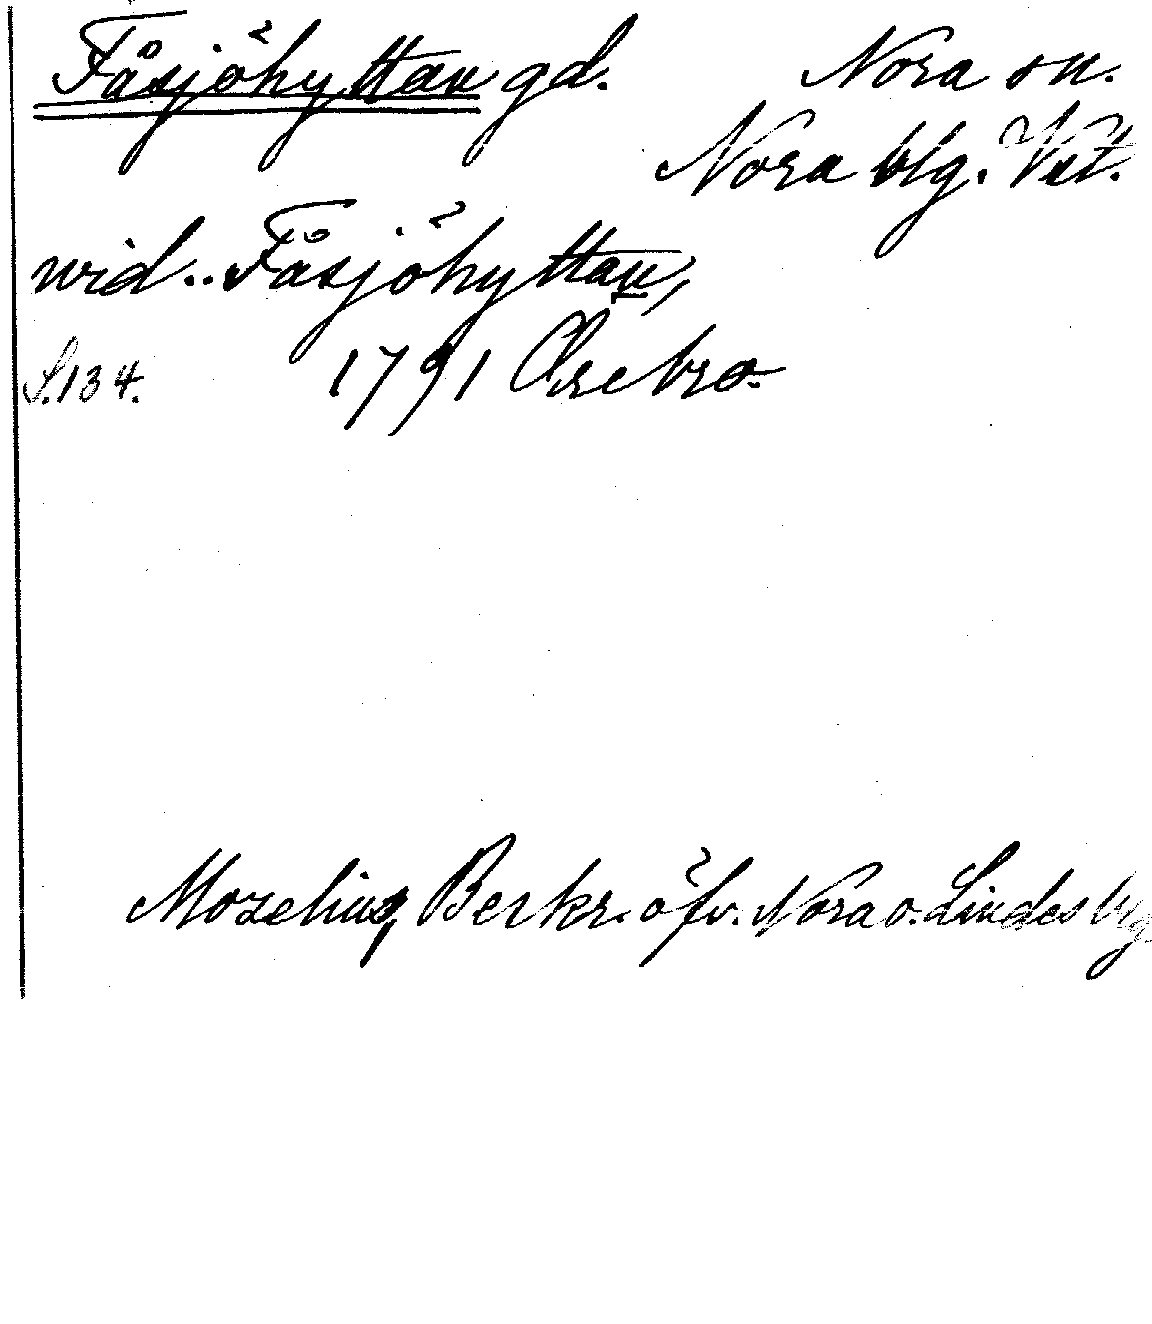 Fåsjöhyttan gd. Nora sn.
Nora blg. Vst.
wid .. Fåsjöhyttan,
S. 134. 1791 Örebro.
Mozelius, Beskr. öfv. Nora o. Lindes blg.